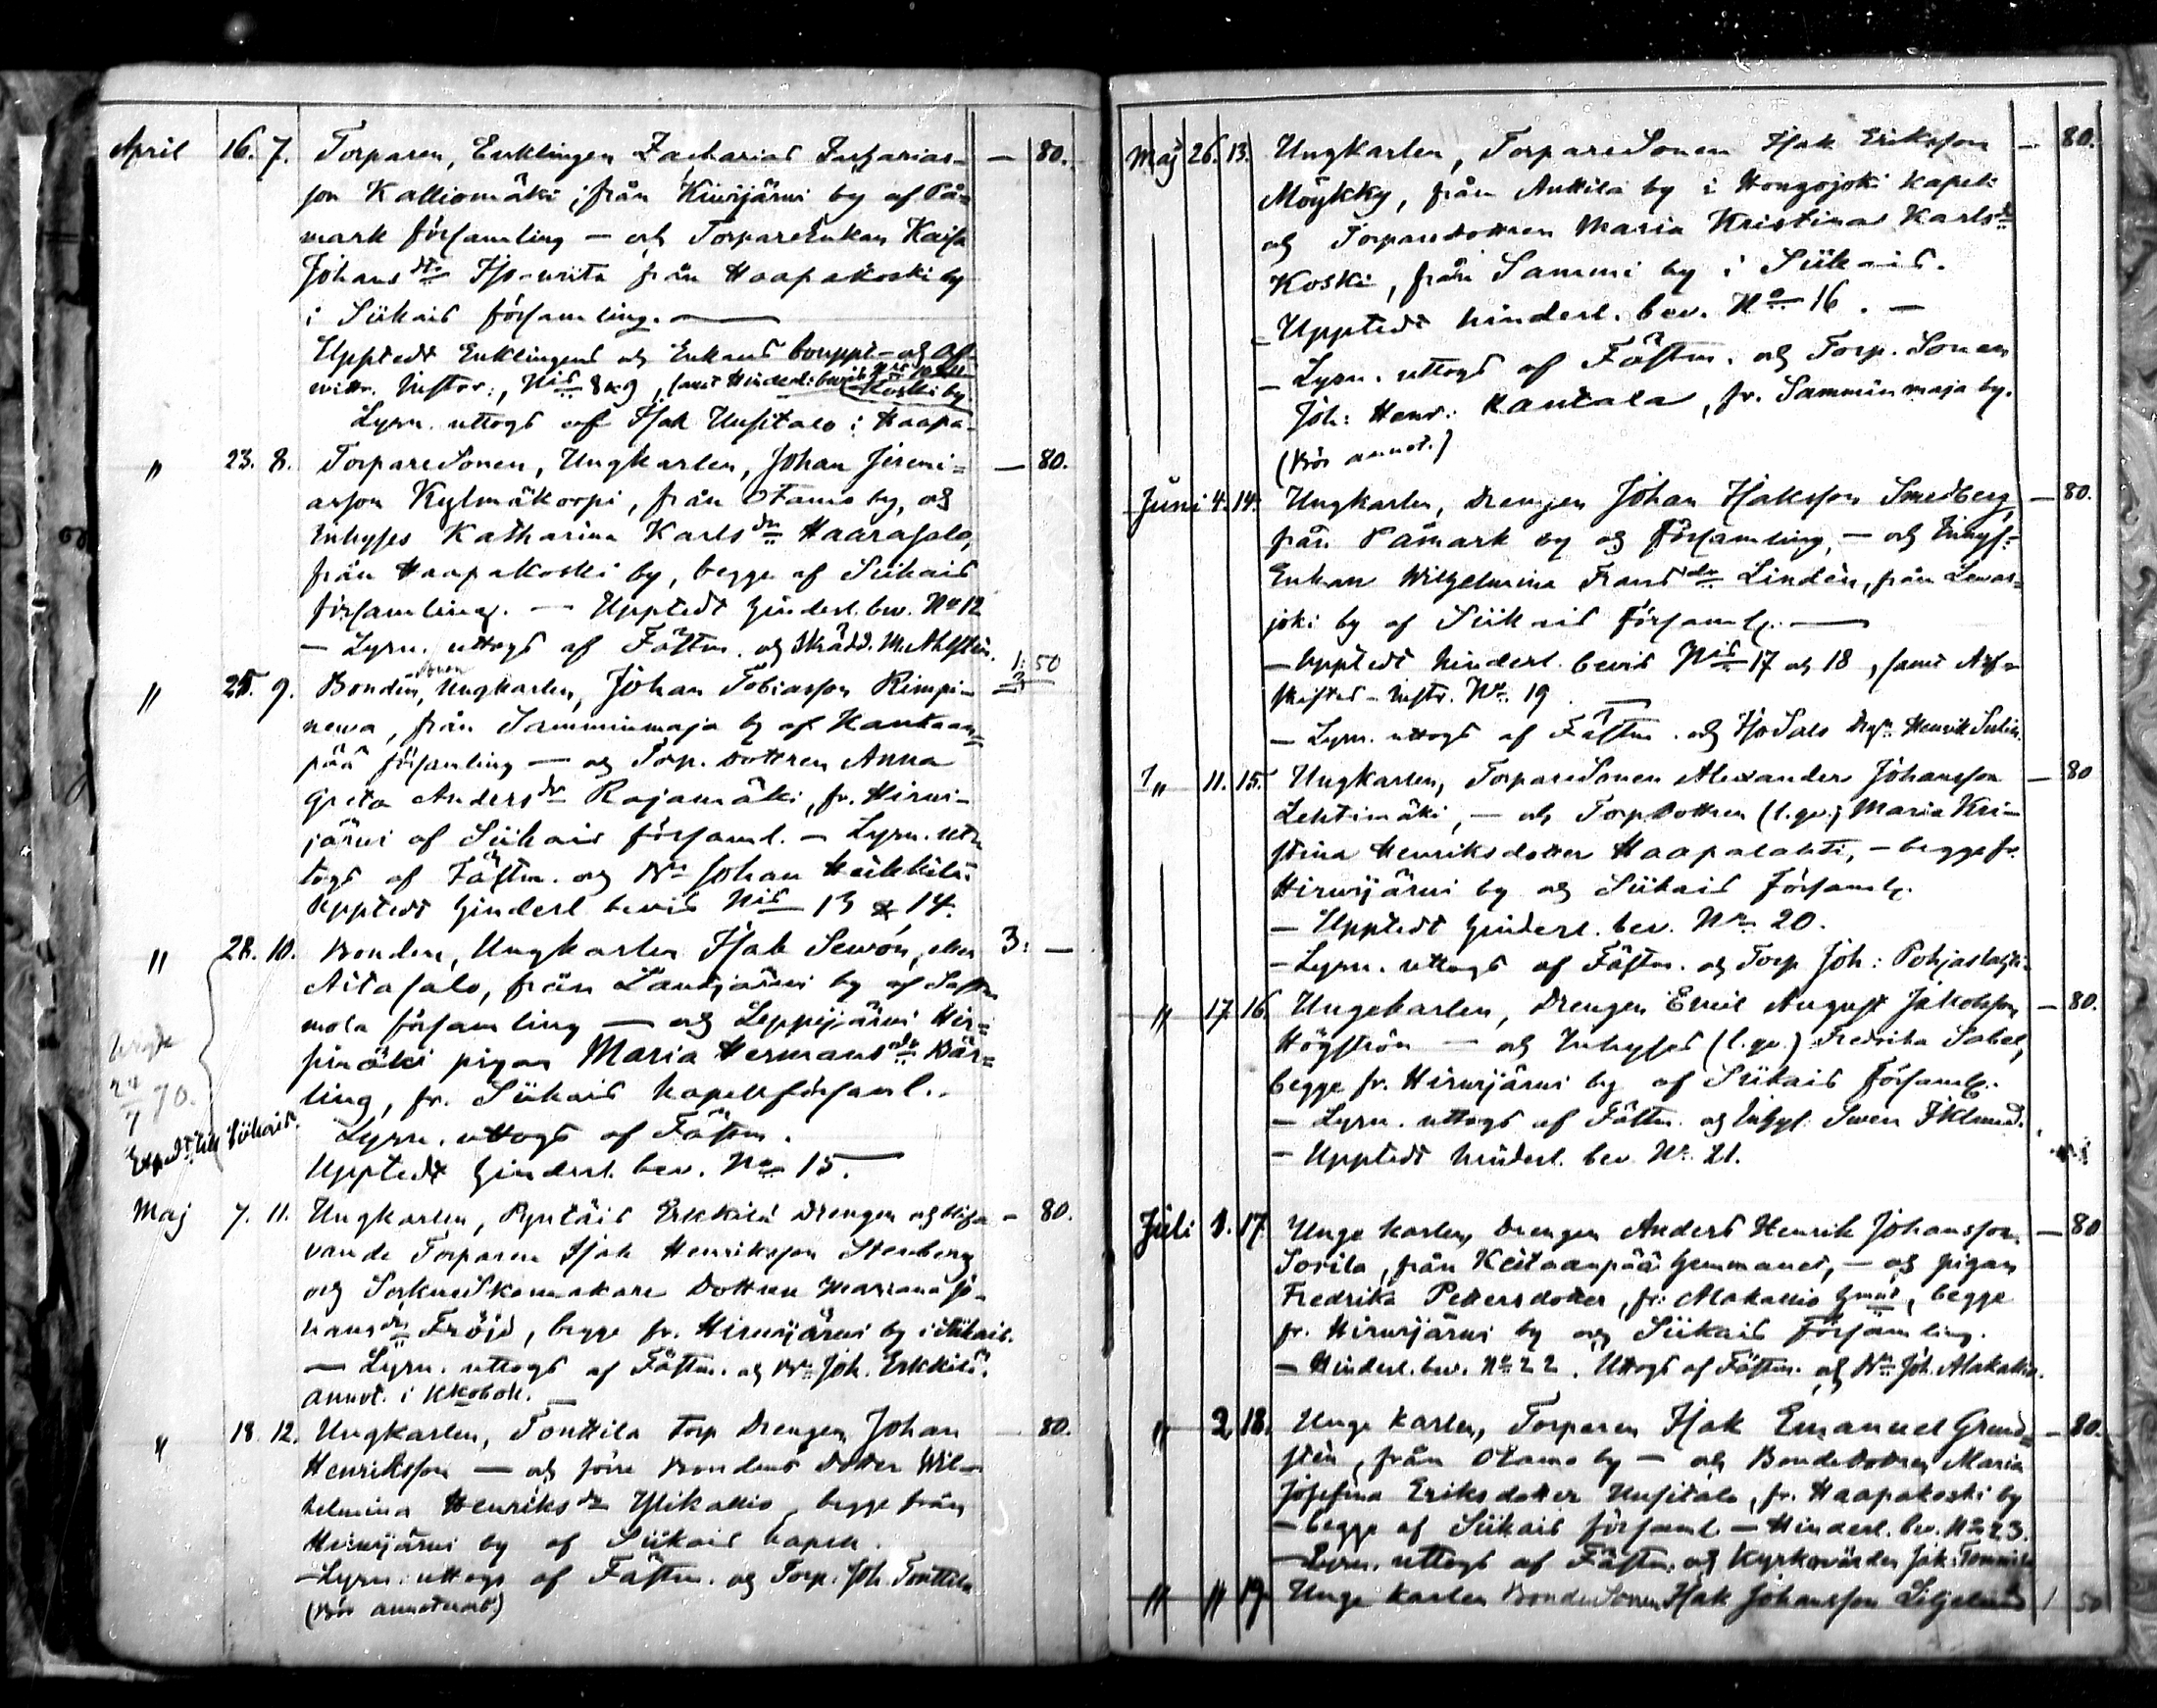 April 16. 7. Torparen, Enklingen Zacharias Zacharias- — 80.
son Kalliomäki, från Kiwijärwi by af På-
mark församling — och TorpareEnkan Kaisa
Johansdtr från Haapakoski by
i Siikais församling. —
Upptedt Enklingens och Enkans bouppt- och af-
wittr. Instr:, Nis 8 & 9, samt Hinderl: bewis
Koski by.
Lysn. uttogs af Isak Uusitalo i Haapa-
" 23. 8. TorpareSonen, Ungkarlen, Johan Jeremi= — 80.
asson Kylmäkorpi, från Otamo by, och
Inhyses Katharina Karlsdtr Haarasalo,
från Haapakoski by, begge af Siikais
församling. — Upptedt hinderl. bew. No 12
— Lysn. uttogs af Fästm. och Skrädd. M. Ahlsten.
" 25. 9. Bondesonen, Ungkarlen, Johan Tobiasson Rimpi- 1: 50
newa, från Samminmaja by af Kankaan=
pää församling — och Torp. dottren Anna
Greta Andersdr Rajamäki, fr. Hirwi-
järwi af Siikais församl. — Lysn. ut-
togs af Fästm. och Bn Johan Heikkilä
Upptedt hinderl. bevis Nis 13 & 14.
" 28. 10. Bonden, Ungkarlen Isak Sewón, eller 3: —
Aitasalo, från Lankjärwi by af Sast-
mola församling — och Leppijärwi Hir-
simäki pigan Maria Hermansdr Bär=
ling, fr. Siikais kapellförsaml..
Lysn. uttogs af Fästm.
Upptedt hinderl. bew. No 15.
70.
Exped. till Siikais.
Maj 7. 11. Ungkarlen, Pyntäis Erkkilä Drengen och blif- — 80.
vande Torparen Isak Henriksson Stenberg
och SockneSkomakare Dottren Mariana Jo-
hansdr Fröjd, begge fr. Hirwijärwi by i Siikais.
— Lysn. uttogs af Fästm. och Bn Joh. Erkkilä.
annot. i Kkobok. —
" 18. 12. Ungkarlen, Tonttila torp Drengen Johan — 80.
Henriksson — och förre Bondens dotter Wil-
helmina Henriksdr Ylikallio, begge från
Hirwijärwi by af Siikais Capell.
— Lysn. uttogs af Fästm. och Torp. Joh. Tonttila
(Bör annoteras)
Maj 26. 13. Ungkarlen, TorpareSonen Isak Eriksson — 80.
Möykky, från Anttila by i Hongojoki kapell
och Torparedottren Maria Kristina Karlsdr
Koski, från Sammi by i Siikais.
— Upptedt hinderl. bev. No 16. —
— Lysn. uttogs af Fästm. och Torp. Sonen
Joh: Henr: Kantala, fr. Samminmaja by.
(Bör annot.)
Juni 4. 14. Ungkarlen, Drengen Johan Isaksson Smedberg, — 80.
från Påmark by och församling, — och Inhys:
Enkan Wilhelmina Fransdr Lindèn, från Lewas=
joki by af Siikais församlg. —
— Upptedt hinderl. bevis Nis 17 och 18, samt Arf=
skiftes-Instr. No 19. —
— Lysn. uttogs af Fästm. och Henrik
" 11. 15. Ungkarlen, TorpareSonen Alexander Johansson — 80
Lehtimäki, — och TorpDottren (l.qv.) Maria Kri-
stina Henriksdotter Haapalahti, — begge fr.
Hirwijärwi by och Siikais församlg.
— Upptedt hinderl. bev. No 20.
— Lysn. uttogs af Fästm. och Torp Joh: Pohjaslahti
" 17 16. Ungekarlen, Drengen Emil August Jakobsson — 80.
Högström — och Inhyses (l.qv.) Fredrika Sabel,
begge fr. Hirwijärwi by af Siikais församlg.
— Lysn. uttogs af Fästm. och Inhys. Swen Iklund.
— Upptedt hinderl. bev No 21.
Juli 1. 17. Unge karlen, Drengen Anders Henrik Johansson — 80
Sorila, från Keitaanpää hemmanet, — och pigan
Fredrika Pettersdotter, fr: Alakallio hmn, begge
fr. Hirwijärwi by och Siikais församling.
— Hinderl. bew. No 22. Uttogs af Fästm. och Bn Joh. Alakallio.
" 2 18. Unge karlen, Torparen Isak Emanuel Grund= — 80.
stèn, från Otamo by — och BondeDottren Maria
Josefina Eriksdotter Uusitalo, fr. Haapakoski by
— begge af Siikais församl. — Hinderl. bev. No 23.
— Lysn. uttogs af Fästm. och Kyrkowärden Jak:
" " 19. Unge karlen BondeSonen Isak Johansson Liljelund 1 50